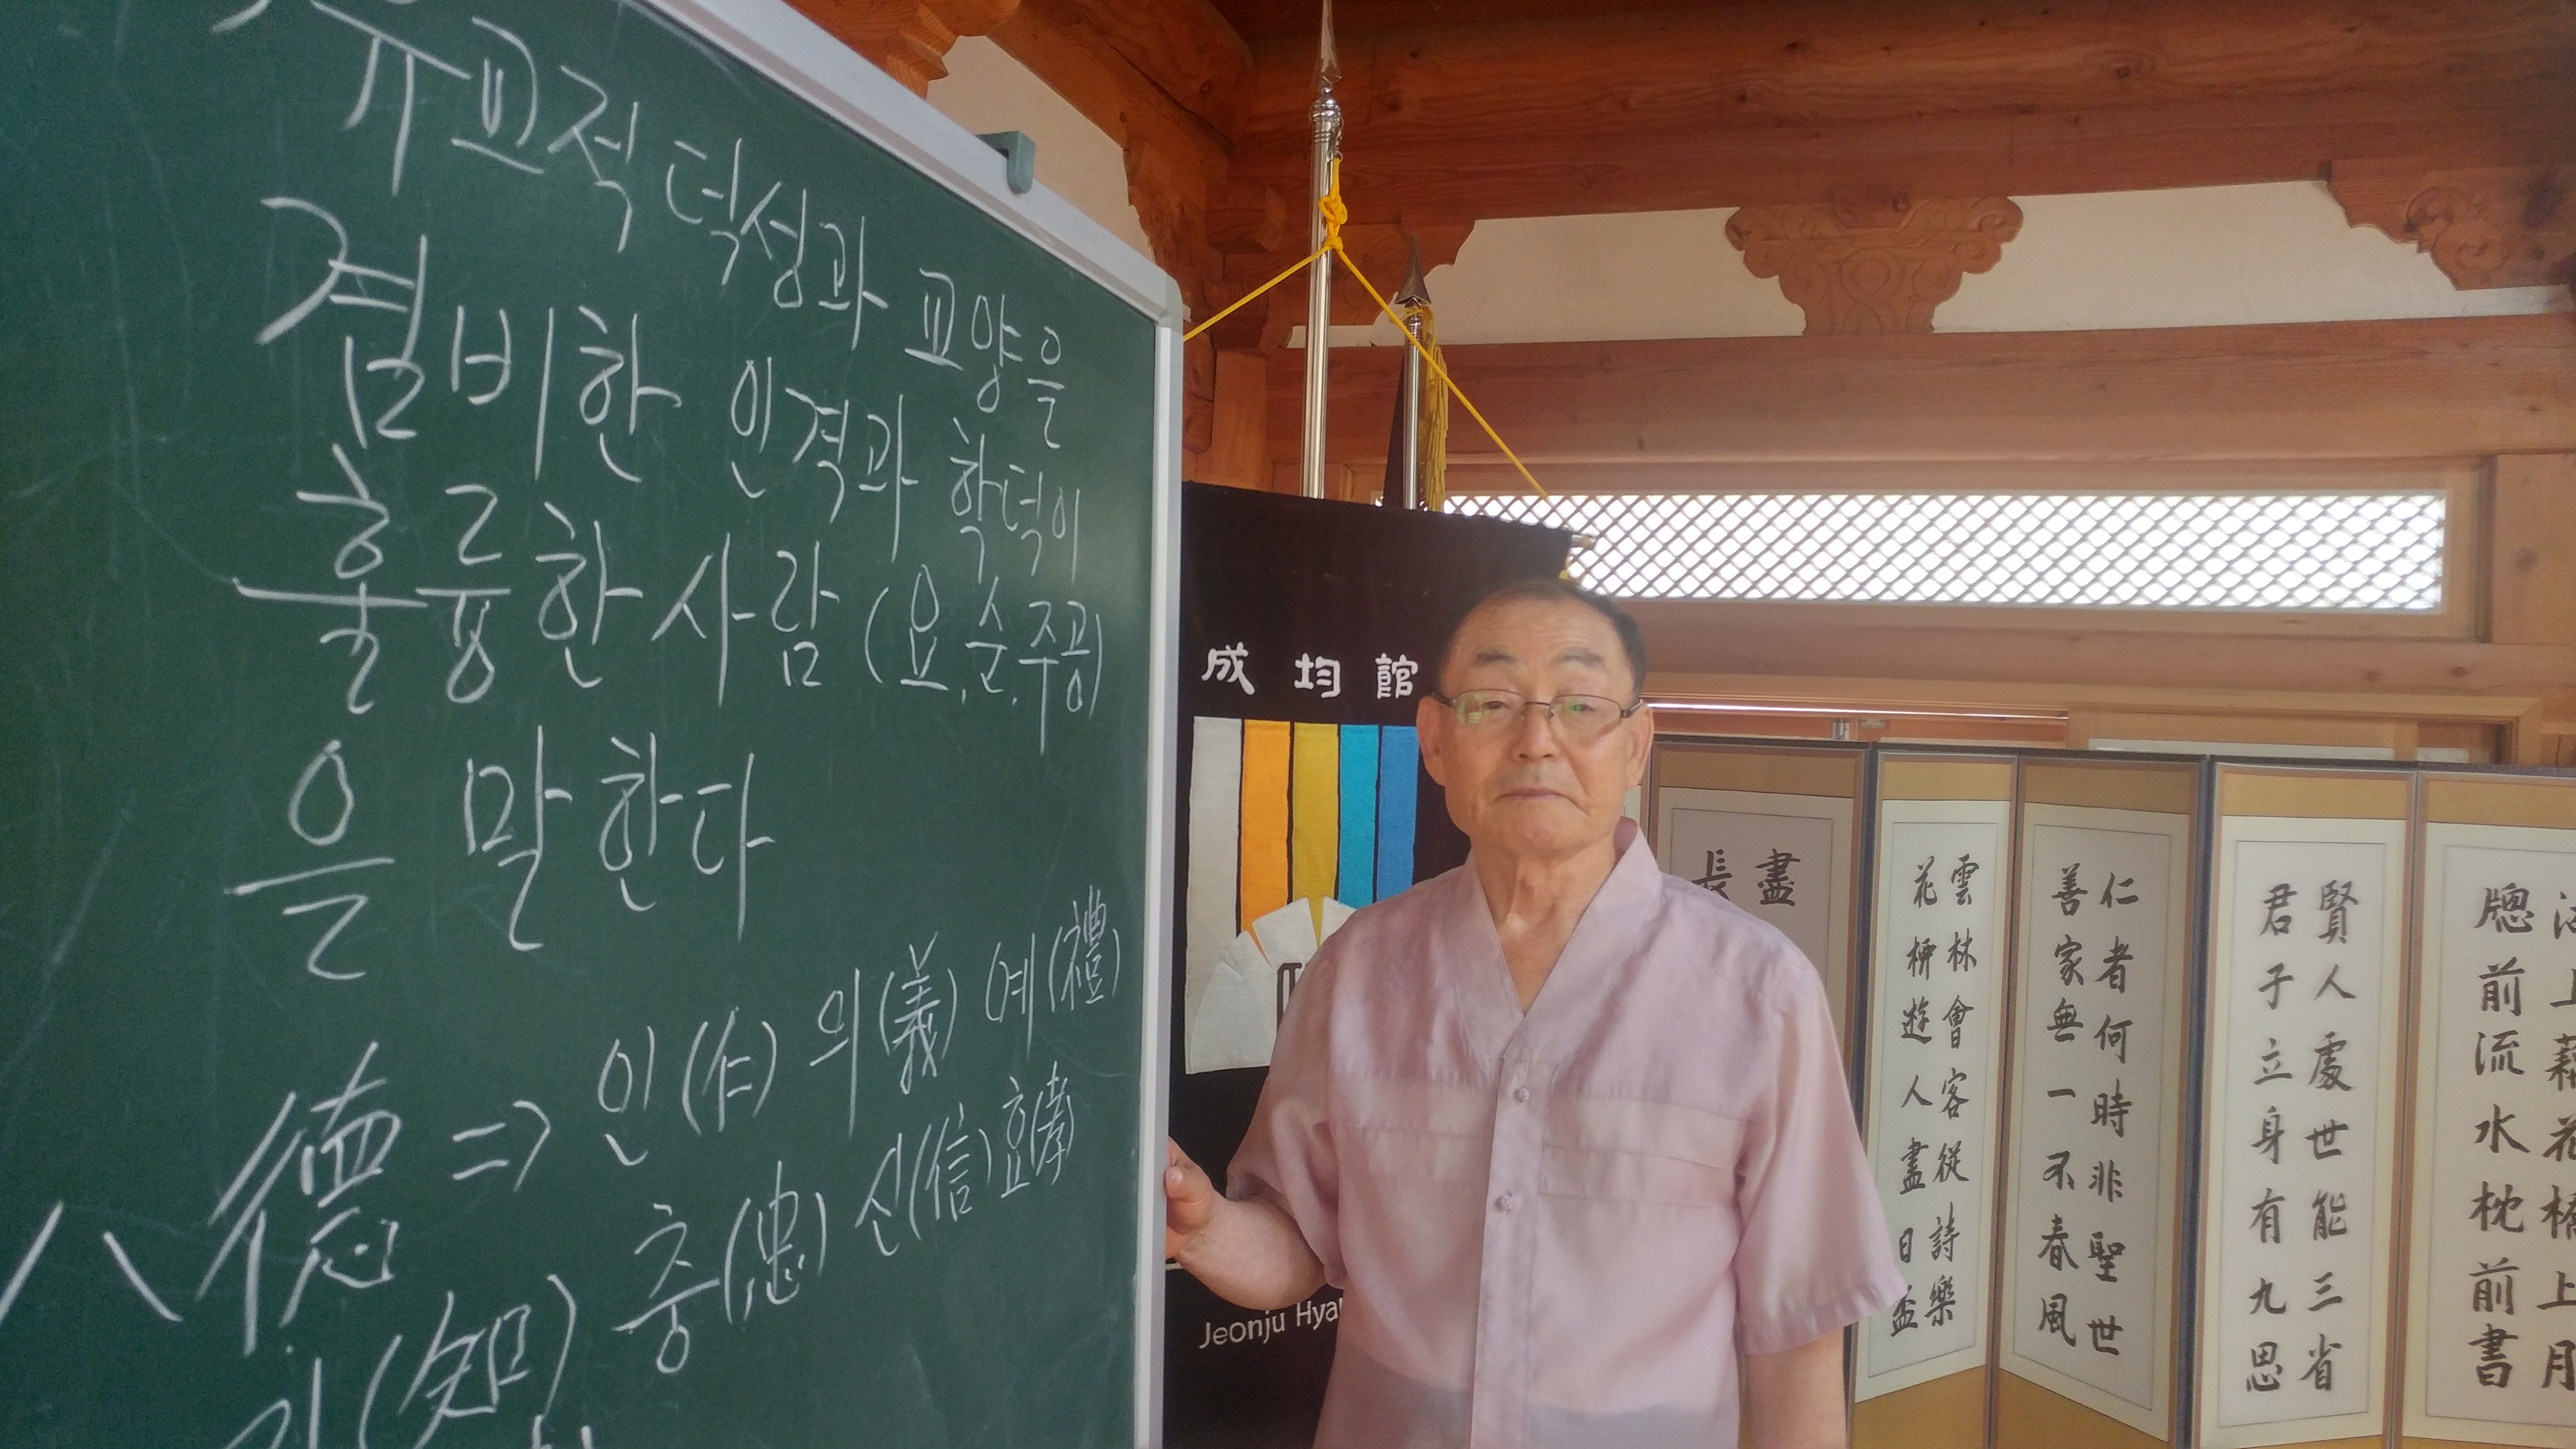 유교적 덕성과 교양을
겸비한 인격과 학덕이
훌륭한 사람 (요, 순, 주공)
을 말한다
八德 => 인(仁) 의(義) 예(禮)
지(知) 충(忠) 신(信) 효(孝)
成均館
Jeonju Hya
盡
長
雲林會客從詩樂
花柳遊人盡日盃
仁者何時非聖世
善家無一不春風
賢人處世能三省
君子立身有九思
牕前流水枕前書